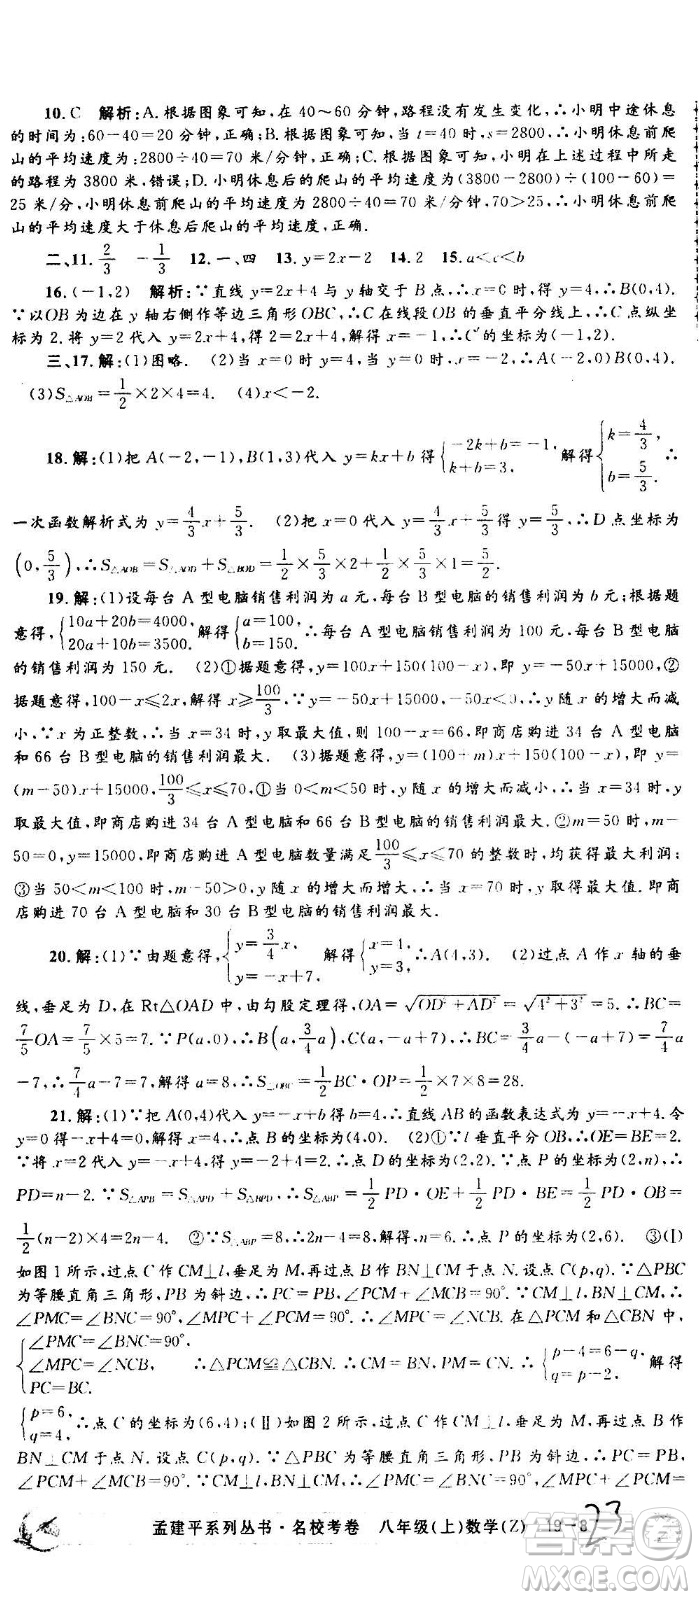 10. C　解析:A. 根据图象可知,在 40～60 分钟,路程没有发生变化,∴小明中途休息
的时间为:60-40=20 分钟,正确;B. 根据图象可知,当 t=40 时,s=2800,∴小明休息前爬
山的平均速度为:2800÷40=70 米/分钟,正确;C. 根据图象可知,小明在上述过程中所走
的路程为 3800 米,错误;D. 小明休息后的爬山的平均速度为:(3800-2800)÷(100-60)=
25 米/分,小明休息前爬山的平均速度为:2800÷40=70 米/分钟,70>25,∴小明休息前爬
山的平均速度大于休息后爬山的平均速度,正确.
二、11. 2/3　-1/3　12. 一、四　13. y=2x-2　14. 2　15. a<c<b
16. (-1,2)　解析:∵直线 y=2x+4 与 y 轴交于 B 点,∴x=0 时,得 y=4,∴B(0,4).
∵以 OB 为边在 y 轴右侧作等边三角形 OBC,∴C 在线段 OB 的垂直平分线上,∴C 点纵坐
标为 2. 将 y=2 代入 y=2x+4,得 2=2x+4,解得 x=-1,∴C′的坐标为(-1,2).
三、17. 解:(1)图略. (2)当 x=0 时,y=4,当 y=0 时,x=-2,∴A(-2,0),B(0,4).
(3)S△AOB=1/2×2×4=4. (4)x<-2.
18. 解:(1)把 A(-2,-1),B(1,3)代入 y=kx+b 得{-2k+b=-1, k+b=3. 解得{k=4/3, b=5/3. ∴
一次函数解析式为 y=4/3x+5/3. (2)把 x=0 代入 y=4/3x+5/3得 y=5/3,∴D 点坐标为
(0,5/3),∴S△AOB=S△AOD+S△BOD=1/2×5/3×2+1/2×5/3×1=5/2.
19. 解:(1)设每台 A 型电脑销售利润为 a 元,每台 B 型电脑的销售利润为 b 元;根据题
意得,{10a+20b=4000, 20a+10b=3500. 解得{a=100, b=150. ∴每台 A 型电脑销售利润为 100 元,每台 B 型电脑
的销售利润为 150 元. (2)①据题意得,y=100x+150(100-x),即 y=-50x+15000;②
据题意得,100-x≤2x,解得 x≥100/3,∵y=-50x+15000,-50<0,∴y 随 x 的增大而减
小,∵x 为正整数,∴当 x=34 时,y 取最大值,则 100-x=66,即商店购进 34 台 A 型电脑
和 66 台 B 型电脑的销售利润最大. (3)据题意得,y=(100+m)x+150(100-x),即 y=
(m-50)x+15000,100/3≤x≤70,①当 0<m<50 时,y 随 x 的增大而减小,∴当 x=34 时,y
取最大值,即商店购进 34 台 A 型电脑和 66 台 B 型电脑的销售利润最大. ②m=50 时,m-50
=0,y=15000,即商店购进 A 型电脑数量满足100/3≤x≤70 的整数时,均获得最大利润;
③当 50<m<100 时,m-50>0,y 随 x 的增大而增大,∴当 x=70 时,y 取得最大值. 即商
店购进 70 台 A 型电脑和 30 台 B 型电脑的销售利润最大.
20. 解:(1)∵由题意得,{y=3/4x, y=-x+7. 解得{x=4, y=3. ∴A(4,3). (2)过点 A 作 x 轴的垂
线,垂足为 D,在 Rt△OAD 中,由勾股定理得,OA=√OD²+AD²=√4²+3²=5. ∴BC=
7/5OA=7/5×5=7. ∵P(a,0),∴B(a,3/4a),C(a,-a+7),∴BC=3/4a-(-a+7)=7/4a
-7,∴7/4a-7=7,解得 a=8,∴S△OBC=1/2BC·OP=1/2×7×8=28.
21. 解:(1)∵把 A(0,4)代入 y=-x+b 得 b=4,∴直线 AB 的函数表达式为 y=-x+4. 令
y=0 得-x+4=0,解得 x=4,∴点 B 的坐标为(4,0). (2)①∵l 垂直平分 OB,∴OE=BE=2.
∵将 x=2 代入 y=-x+4 得 y=-2+4=2. ∴点 D 的坐标为(2,2). ∵点 P 的坐标为(2,n),∴
PD=n-2. ∵S△APB=S△APD+S△BPD,∴S△ABP=1/2PD·OE+1/2PD·BE=1/2PD·OB=
1/2(n-2)×4=2n-4. ②∵S△ABP=8,∴2n-4=8,解得 n=6. ∴点 P 的坐标为(2,6). ③(Ⅰ)
如图 1 所示,过点 C 作 CM⊥l,垂足为 M,再过点 B 作 BN⊥CM 于点 N. 设点 C(p,q). ∵△PBC
为等腰直角三角形,PB 为斜边,∴PC=PB,∠PCM+∠MCB=90°. ∵CM⊥l,BN⊥CM,∴
∠PMC=∠BNC=90°,∠MPC+∠PCM=90°. ∴∠MPC=∠NCB. 在△PCM 和△CBN 中,
{∠PMC=∠BNC=90°, ∠MPC=∠NCB, PC=BC. ∴△PCM≌△CBN. ∴CM=BN,PM=CN. ∴{p-4=6-q, q=p-2. 解得
{p=6, q=4. ∴点 C 的坐标为(6,4);(Ⅱ)如图 2 所示,过点 C 作 CM⊥l,垂足为 M,再过点 B 作
BN⊥CM 于点 N. 设点 C(p,q). ∵△PBC 为等腰直角三角形,PB 为斜边,∴PC=CB,
∠PCM+∠MCB=90°. ∵CM⊥l,BN⊥CM,∴∠PMC=∠BNC=90°,∠MPC+∠PCM=
孟建平系列丛书·名校考卷　八年级(上)数学(Z)　19-8
23
作业帮